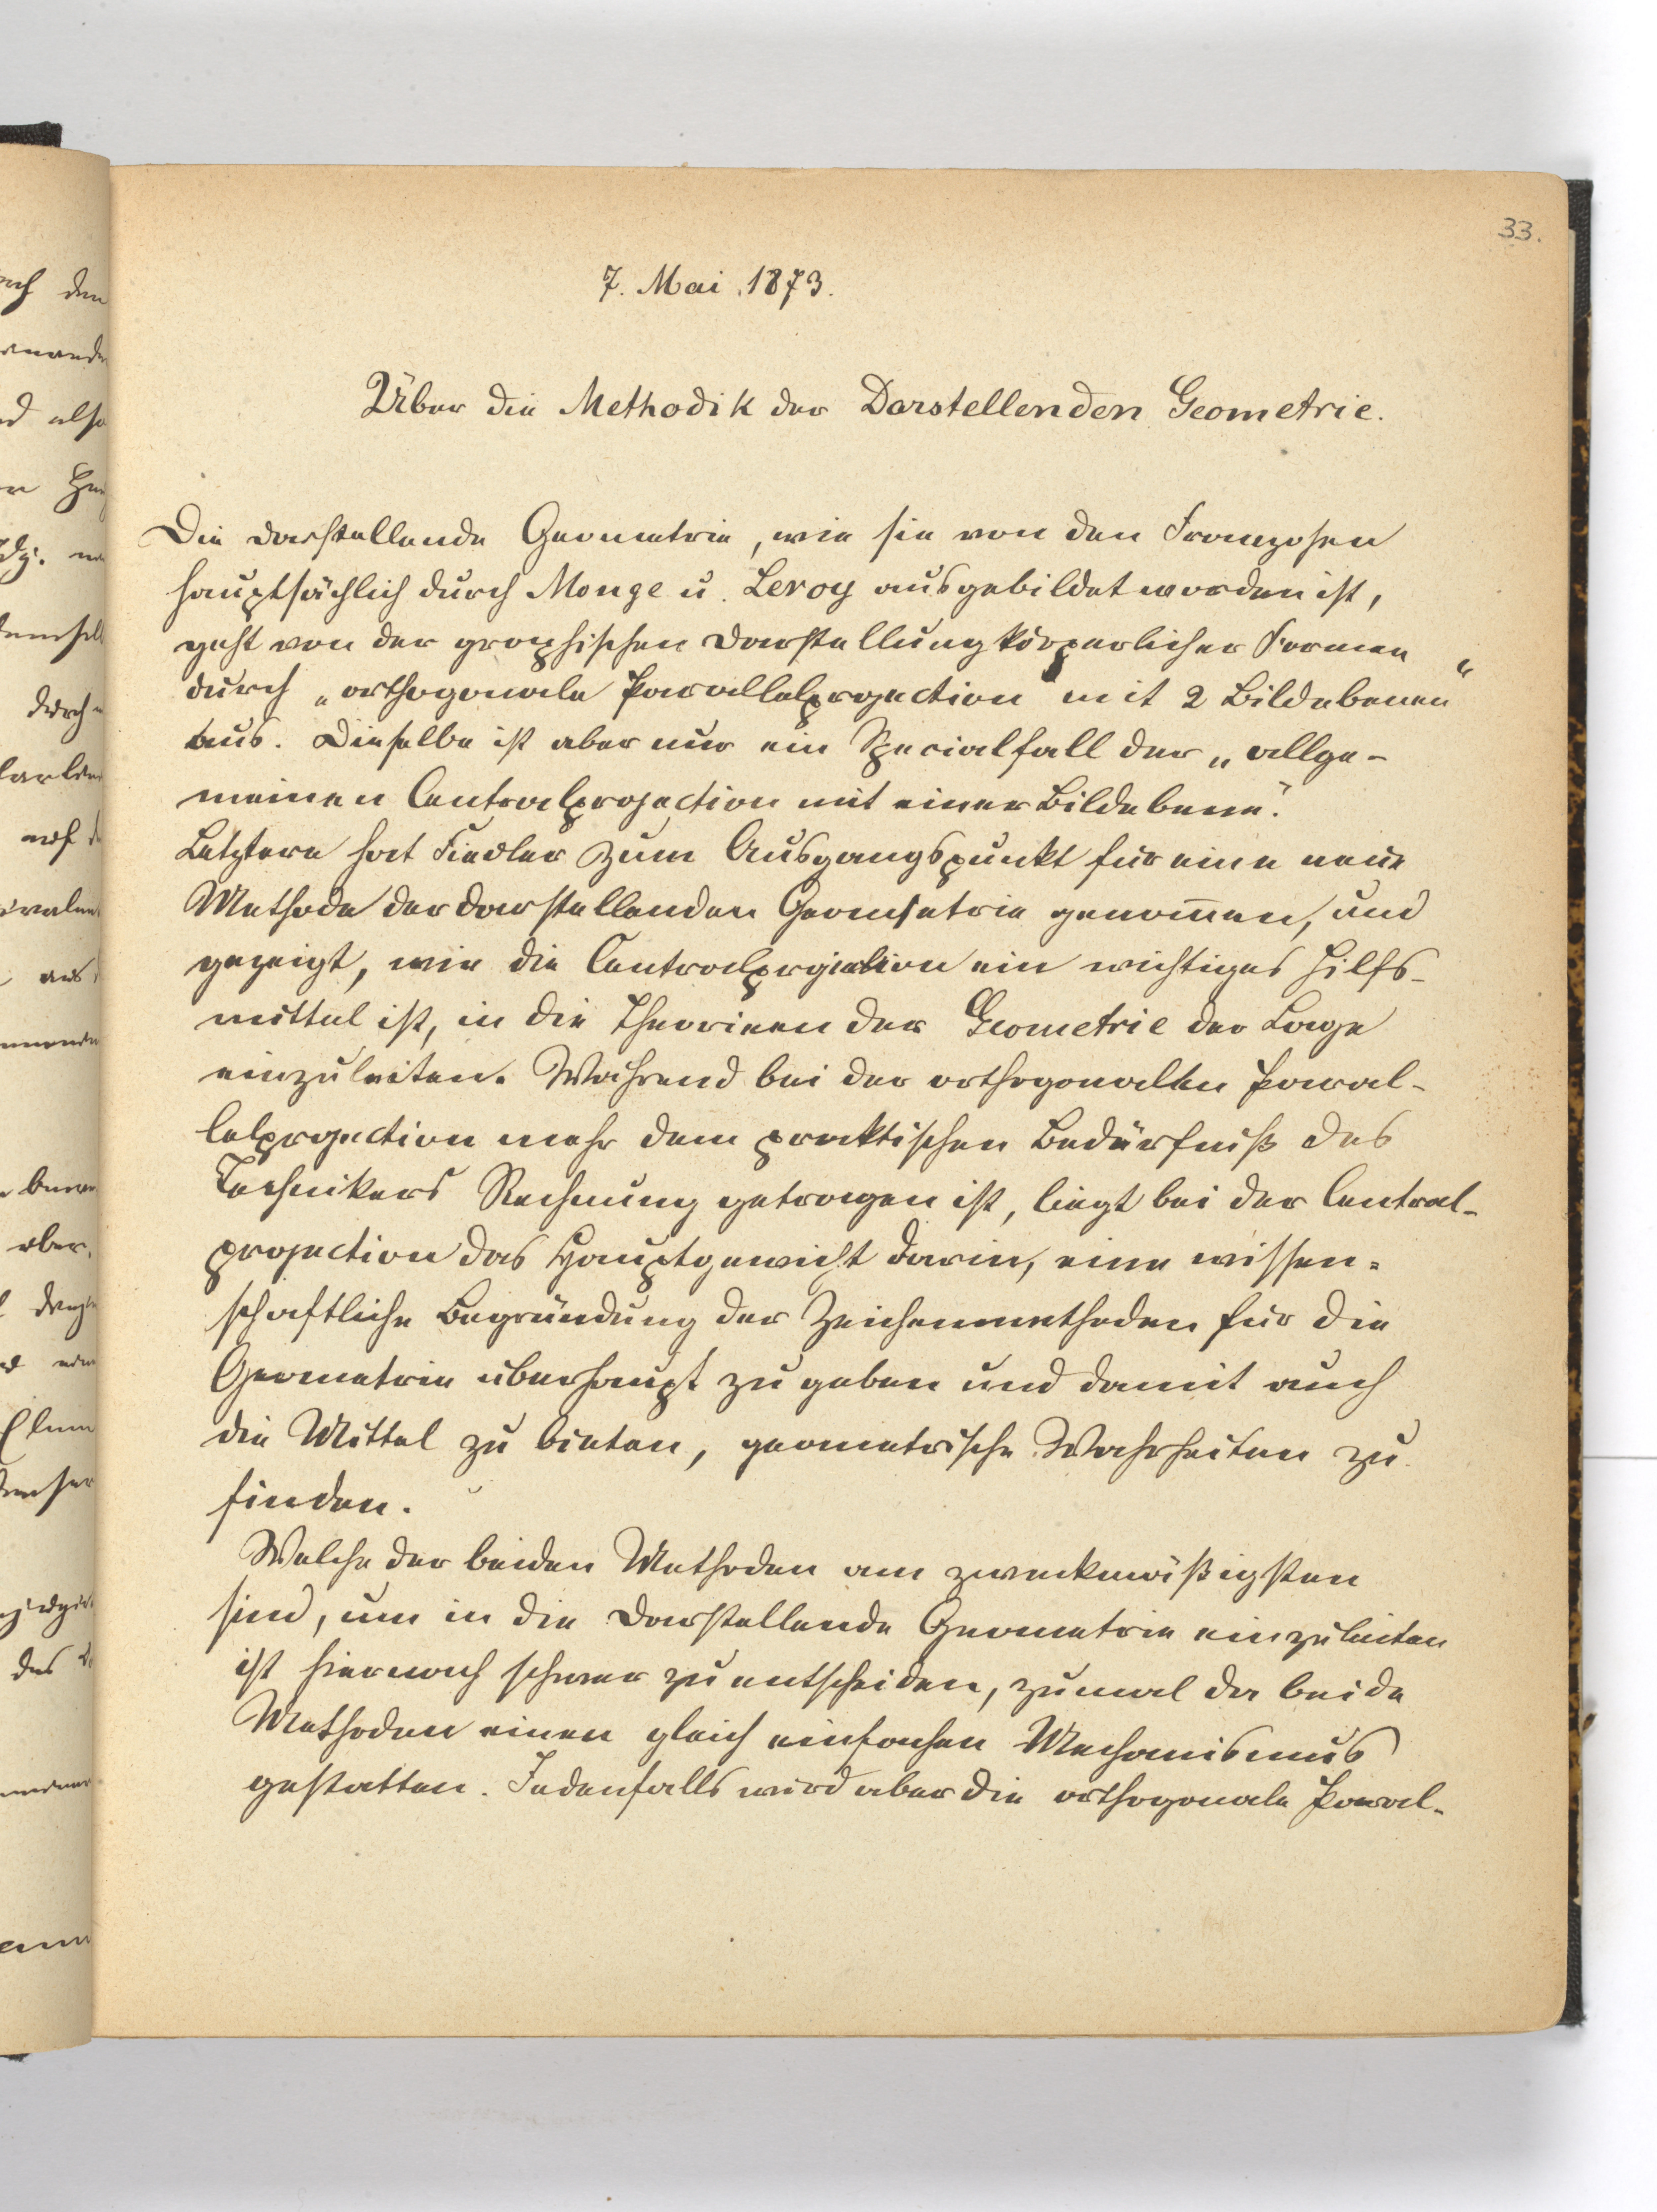 33.
7. Mai 1873.
Über die Methodik der Darstellenden Geometrie.
Die darstellende Geometrie, wie sie von den Franzosen
hauptsächlich durch Monge u. Leroy ausgebildet worden ist,
geht von der graphischen Darstellung körperlicher Formen
durch „orthogonale Parallelprojection mit 2 Bildebenen“
aus. Dieselbe ist aber nur ein Specialfall der „allge-
meinen Centralprojection mit einer Bildebene“.
Letztere hat Fiedler zum Ausgangspunkt für eine neue
Methode der darstellenden Geometrie genom̅en, und
gezeigt, wie die Centralprojection ein wichtiges Hilfs-
mittel ist, in die Theorieen der Geometrie der Lage
einzuleiten. Während bei der orthogonalen Paral-
lelprojection mehr dem praktischen Bedürfniß des
Technikers Rechnung getragen ist, liegt bei der Central-
projection das Hauptgewicht darin, eine wissen-
schaftliche Begründung der Zeichenmethoden für die
Geometrie überhaupt zu geben und damit auch
die Mittel zu bieten, geometrische Wahrheiten zu
finden.
Welche der beiden Methoden am zweckmäßigsten
sind, um in die darstellende Geometrie einzuleiten
ist hiernach schwer zu entscheiden, zumal da beide
Methoden einen gleich einfachen Mechanismus
gestatten. Jedenfalls wird aber die orthogonale Paral-